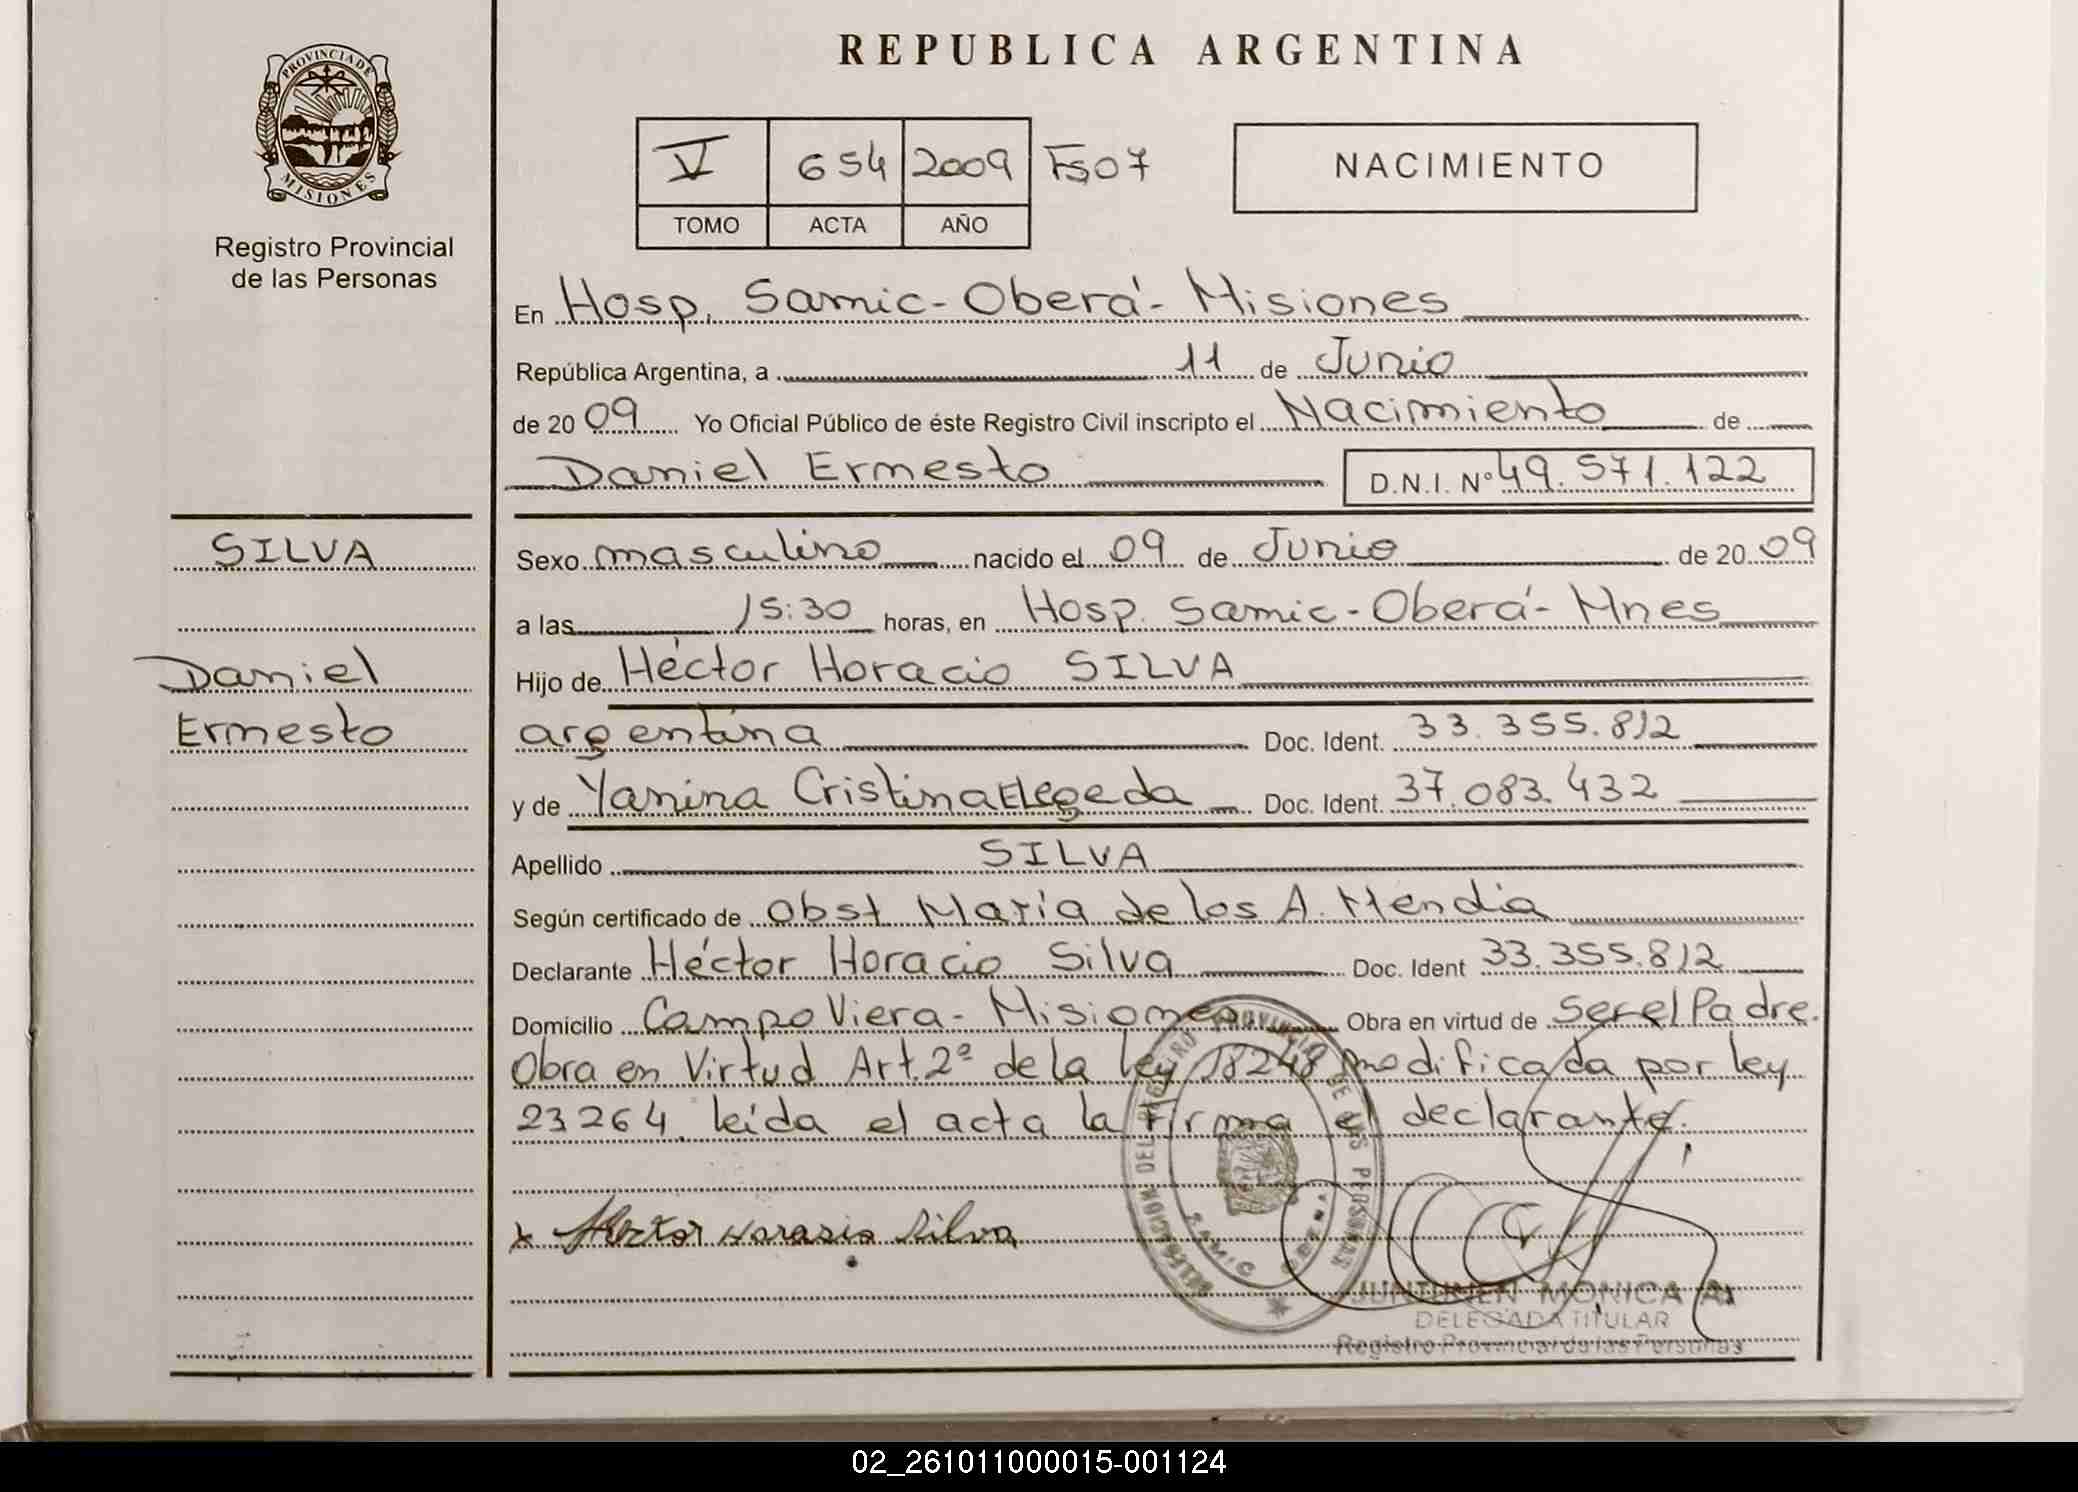 PROVINCIA DE
MISIONES
Registro Provincial
de las Personas
REPUBLICA ARGENTINA
V 654 2009 Fs07
TOMO ACTA AÑO
NACIMIENTO
En Hosp. Samic-Oberá-Misiones
República Argentina, a 11 de Junio
de 2009 Yo Oficial Público de éste Registro Civil inscripto el Nacimiento de
Daniel Ernesto D.N.I. Nº 49.571.122
SILVA
Daniel
Ernesto
Sexo masculino nacido el 09 de Junio de 2009
a las 15:30 horas, en Hosp. Samic-Oberá-Mnes
Hijo de Héctor Horacio SILVA
argentina Doc. Ident. 33.355.812
y de Yanina Cristina Doc. Ident. 37.083.432
Apellido SILVA
Según certificado de Obst María de los A. Mendia
Declarante Héctor Horacio Silva Doc. Ident 33.355.812
Domicilio Campo Viera-Misiones Obra en virtud de ser el Padre.
Obra en Virtud Art.2º de la ley 18248 modificada por ley
23264. leída el acta la firma el declarante.
x Hector Horasio Silva
DELEGACION DEL REGISTRO PROVINCIAL DE LAS PERSONAS
SAMIC OBERA
JUNTUNEN MONICA A.
DELEGADA TITULAR
Registro Provincial de las Personas
02_261011000015-001124